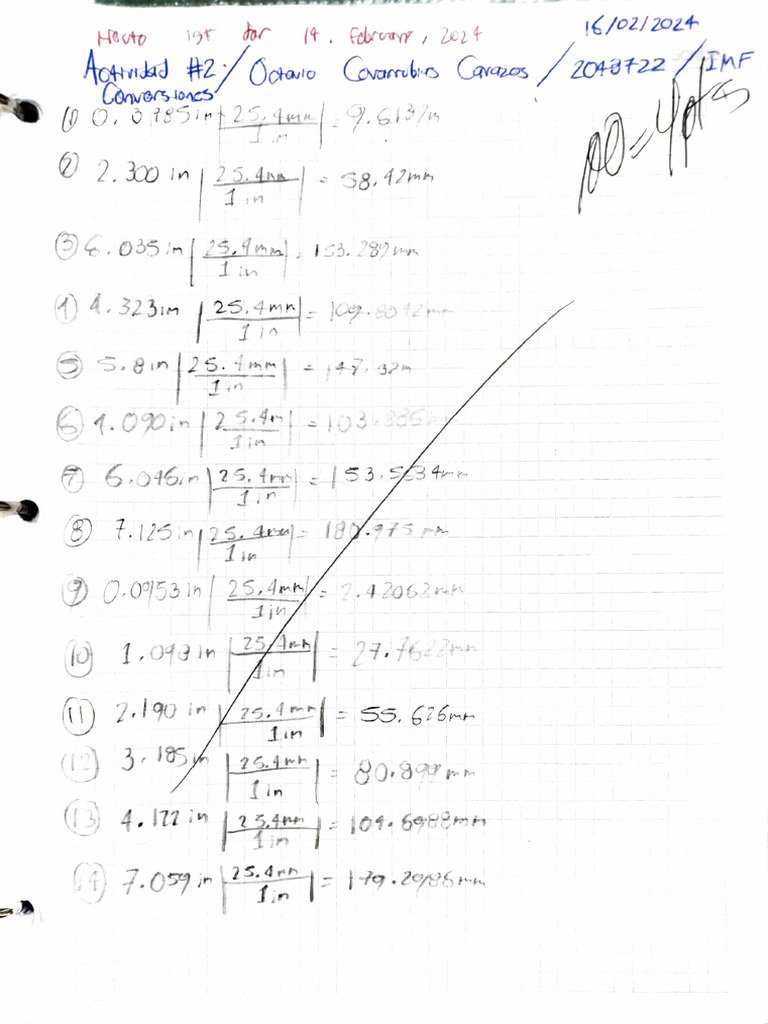 16/02/2024
14. February, 2024
Actividad #2: / Octavio Covarrubias Carazos / 2048722 / IMF
Conversiones
100=4pts
① 0.3785in | 25.4mm / 1in | =
② 2.300 in | 25.4mm / 1in | = 58.42mm
③ 6.035in | 25.4mm / 1in | = 153.289mm
④ 4.323in | 25.4mm / 1in | = 109.8042mm
⑤ 5.8in | 25.4mm / 1in | = 147.32m
⑥ 4.090in | 25.4m / 1in | = 103.886m
⑦ 6.046in | 25.4mm / 1in | = 153.5684mm
⑧ 7.125in | 25.4mm / 1in | = 180.975mm
⑨ 0.0953in | 25.4mm / 1in | = 2.42062mm
⑩ 1.093in | 25.4mm / 1in | = 27.7622mm
⑪ 2.190 in | 25.4mm / 1in | = 55.626mm
⑫ 3.185in | 25.4mm / 1in | = 80.899mm
⑬ in | 25.4mm / 1in | =
⑭ 7.059in | 25.4mm / 1in | =